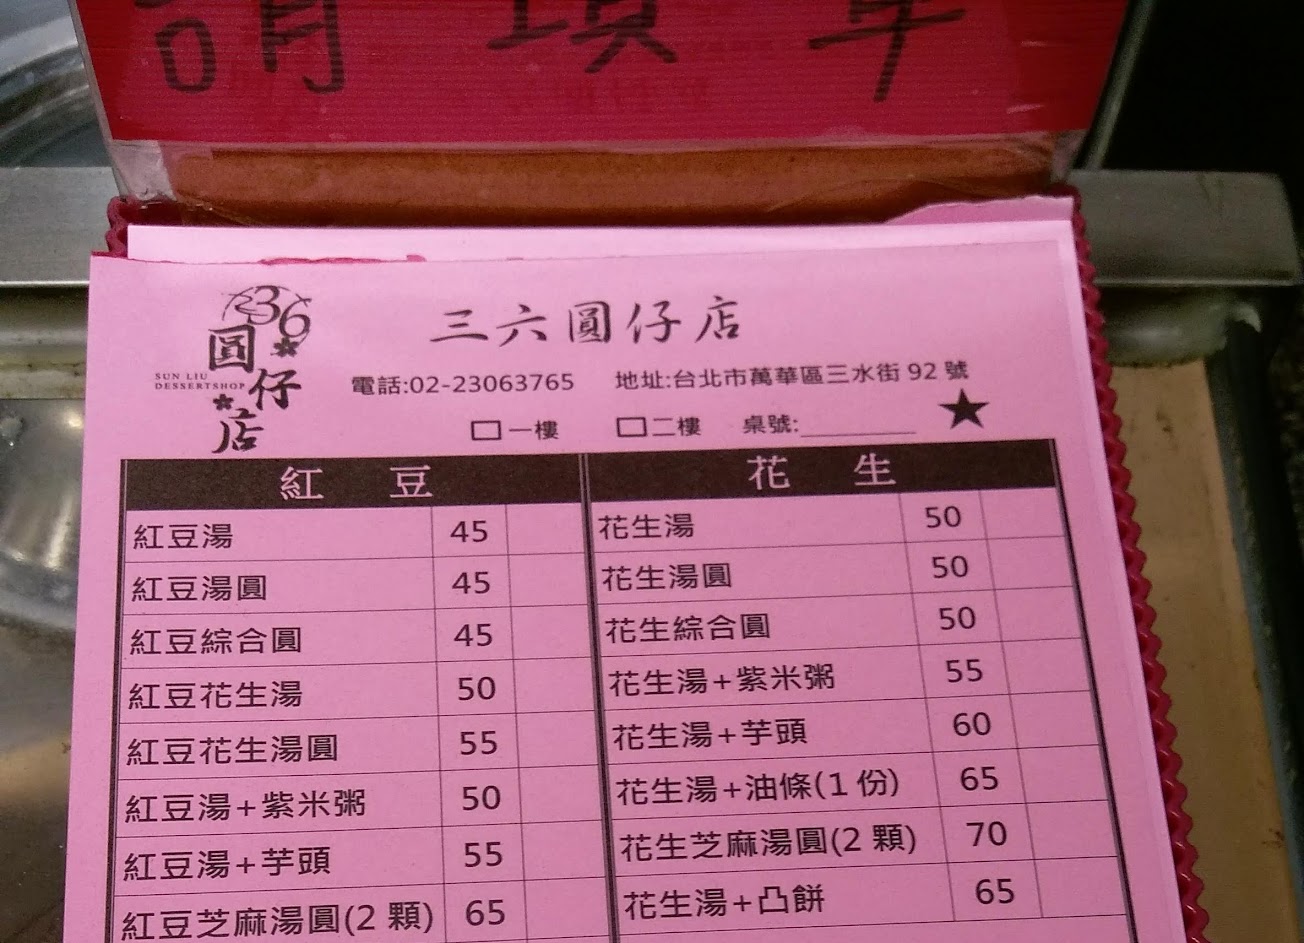 三六圓仔店
36
圓仔店
SUN LIU
DESSERTSHOP
電話:02-23063765 地址:台北市萬華區三水街 92 號
□一樓 □二樓 桌號:________ ★
紅豆 花生
紅豆湯 45 花生湯 50
紅豆湯圓 45 花生湯圓 50
紅豆綜合圓 45 花生綜合圓 50
紅豆花生湯 50 花生湯+紫米粥 55
紅豆花生湯圓 55 花生湯+芋頭 60
紅豆湯+紫米粥 50 花生湯+油條(1 份) 65
紅豆湯+芋頭 55 花生芝麻湯圓(2 顆) 70
紅豆芝麻湯圓(2 顆) 65 花生湯+凸餅 65